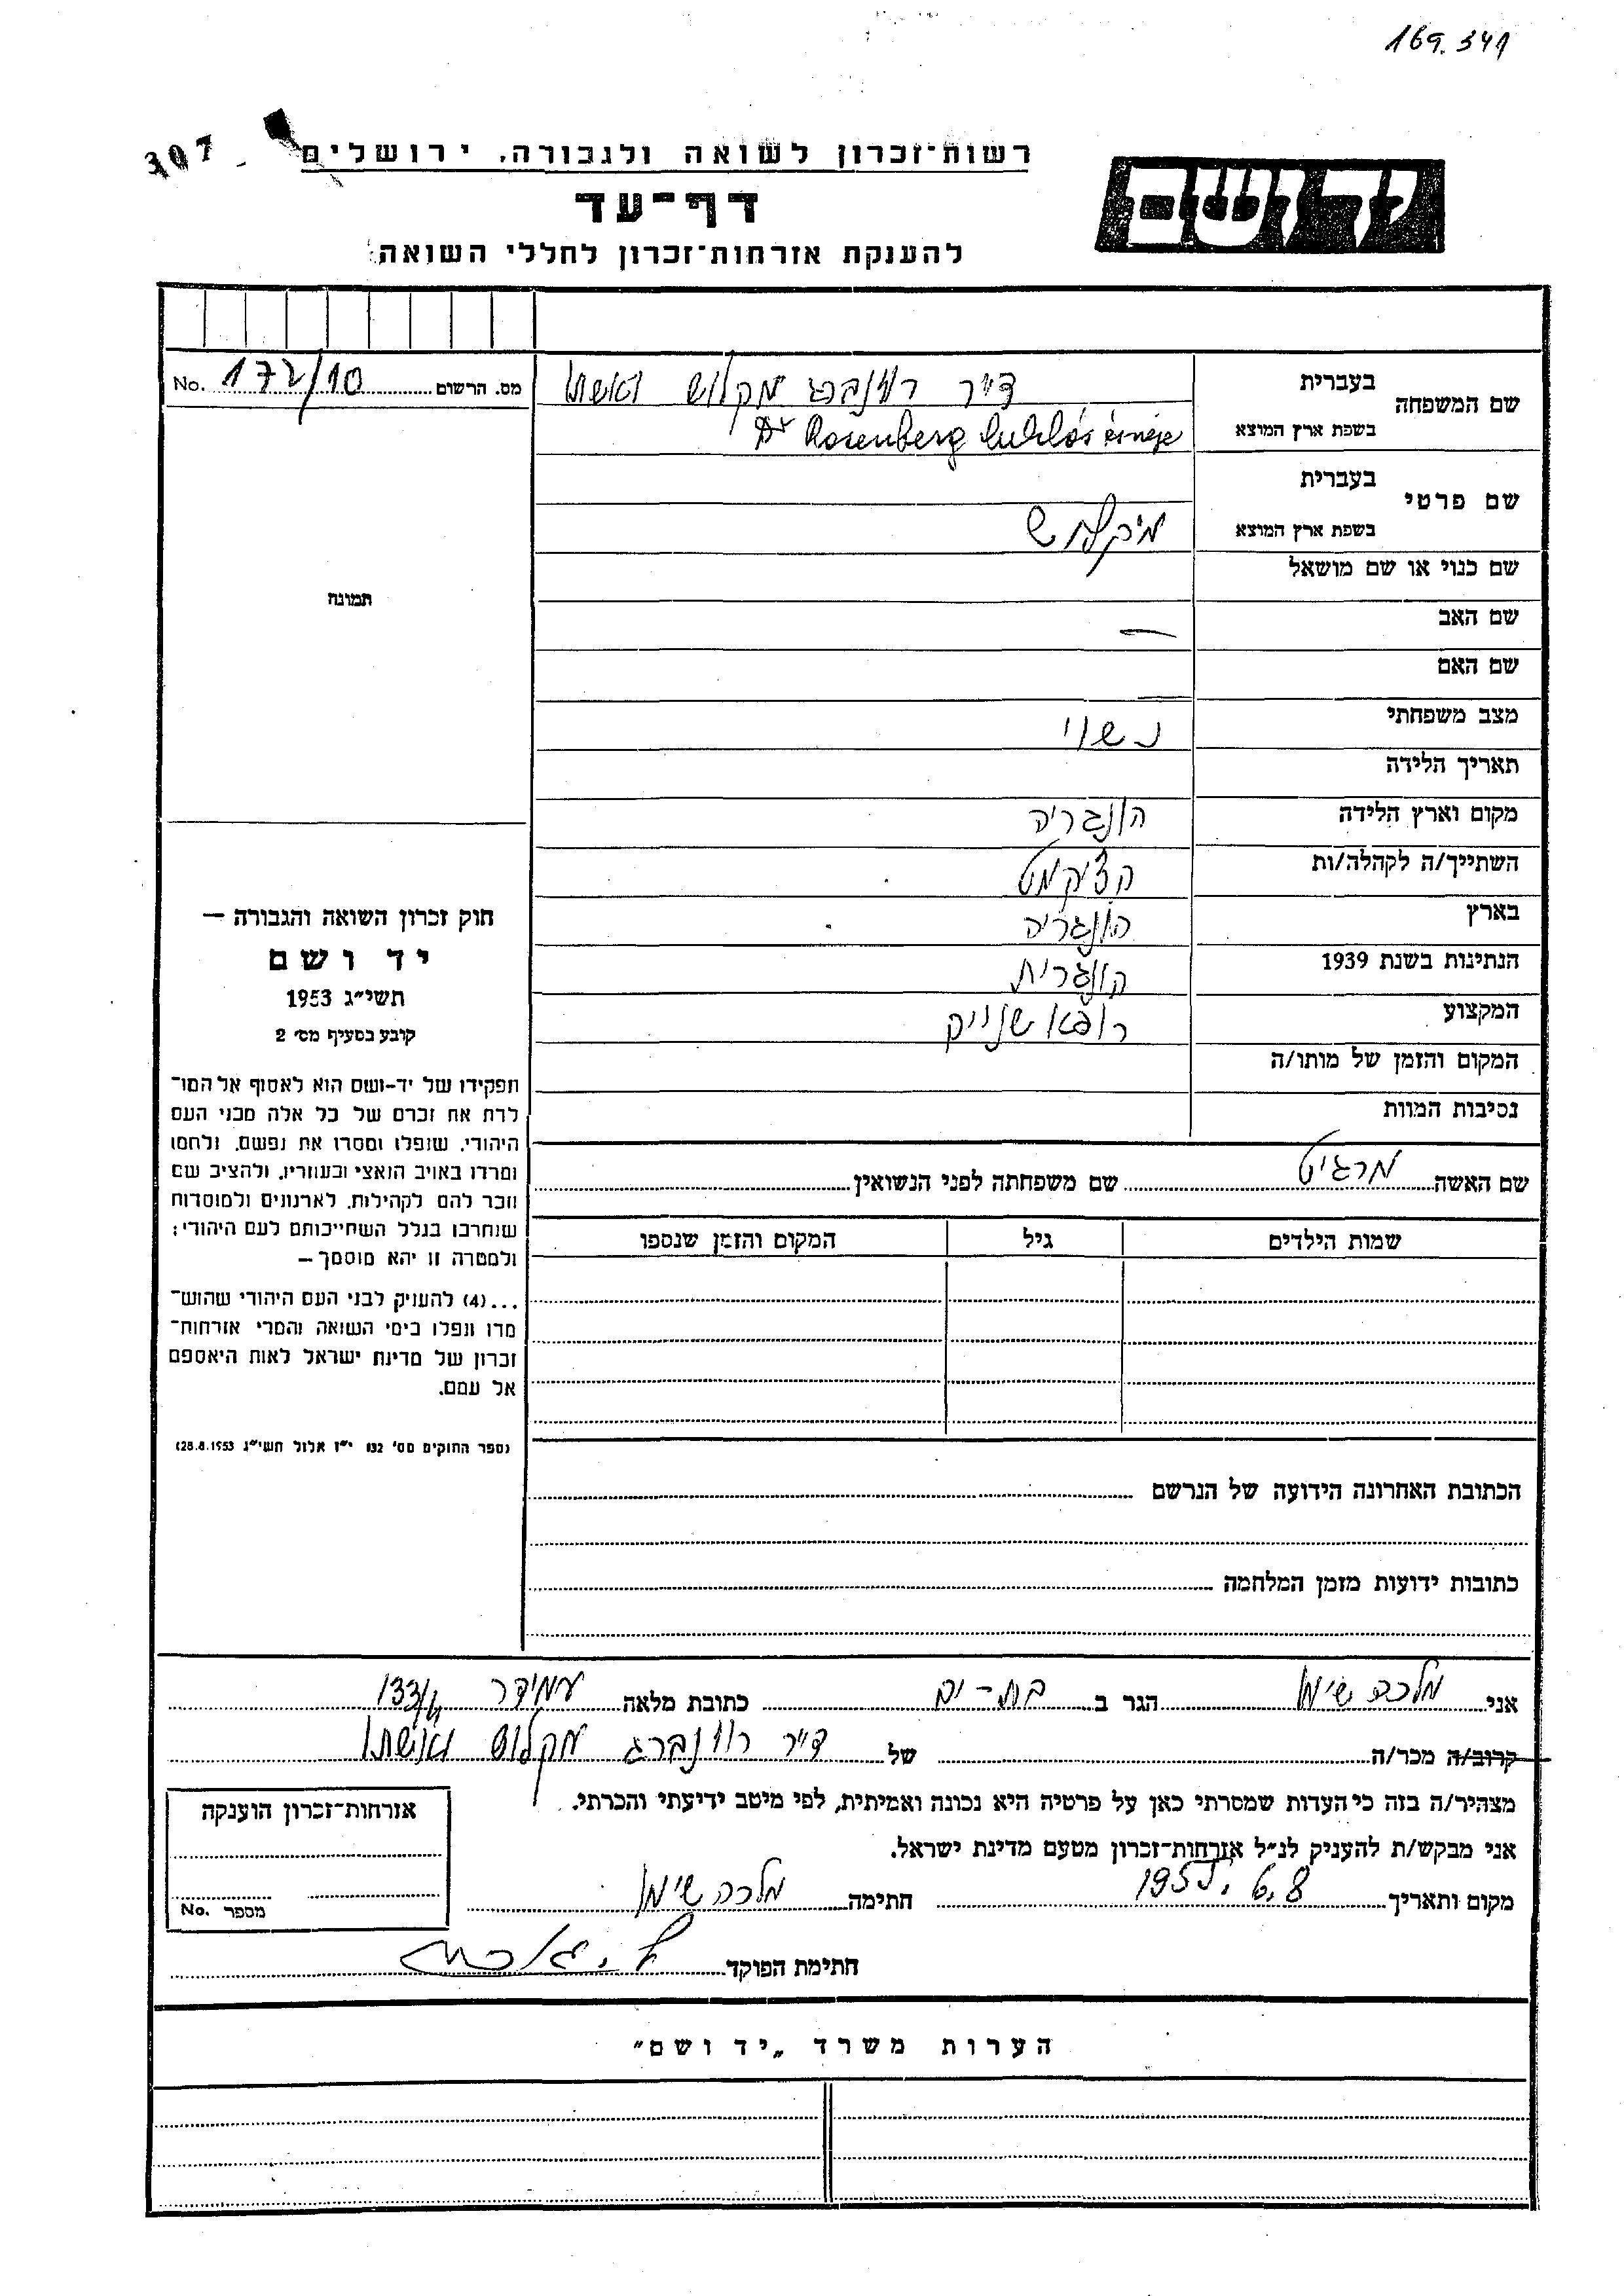 169.341
307-
רשות־זכרון לשואה ולגבורה, ירושלים
יד ושם
דף־עד
להענקת אזרחות־זכרון לחללי השואה
שם המשפחה
בעברית
ד״ר רוזנברג מקלוש ואשתו
בשפת ארץ המוצא
Dr Rosenberg Miklós és neje
מס. הרשום 172/10 No.
שם פרטי
בעברית
בשפת ארץ המוצא
מיקלוש
שם כנוי או שם מושאל
תמונה
שם האב —
שם האם —
מצב משפחתי נשוי
תאריך הלידה
מקום וארץ הלידה הונגריה
השתייך/ה לקהלה/ות קצ'קמט
בארץ הונגריה
הנתינות בשנת 1939 הונגרית
המקצוע רופא שניים
המקום והזמן של מותו/ה
נסיבות המוות
חוק זכרון השואה והגבורה —
יד ושם
תשי״ג 1953
קובע בסעיף מס׳ 2
תפקידו של יד-ושם הוא לאסוף אל המו־
לדת את זכרם של כל אלה מבני העם
היהודי, שנפלו ומסרו את נפשם, נלחמו
ומרדו באויב הנאצי ובעוזריו, ולהציב שם
וזכר להם לקהילות, לארגונים ולמוסדות
שנחרבו בגלל השתייכותם לעם היהודי;
ולמטרה זו יהא מוסמך —
...(4) להעניק לבני העם היהודי שהוש־
מדו ונפלו בימי השואה והמרי אזרחות־
זכרון של מדינת ישראל לאות היאספם
אל עמם.
(ספר החוקים מס׳ 132 י״ז אלול תשי״ג 28.8.1953)
שם האשה מרגיט שם משפחתה לפני הנשואין
שמות הילדים גיל המקום והזמן שנספו
הכתובת האחרונה הידועה של הנרשם
כתובות ידועות מזמן המלחמה
אני מלכה שימן הגר ב בת-ים כתובת מלאה עמידר 133/4
קרוב/ה מכר/ה של ד״ר רוזנברג מקלוש ואשתו
מצהיר/ה בזה כי העדות שמסרתי כאן על פרטיה היא נכונה ואמיתית, לפי מיטב ידיעתי והכרתי.
אני מבקש/ת להעניק לנ״ל אזרחות־זכרון מטעם מדינת ישראל.
מקום ותאריך 8.6.1955 חתימה מלכה שימן
חתימת הפוקד
אזרחות־זכרון הוענקה
מספר No.
הערות משרד „יד ושם״